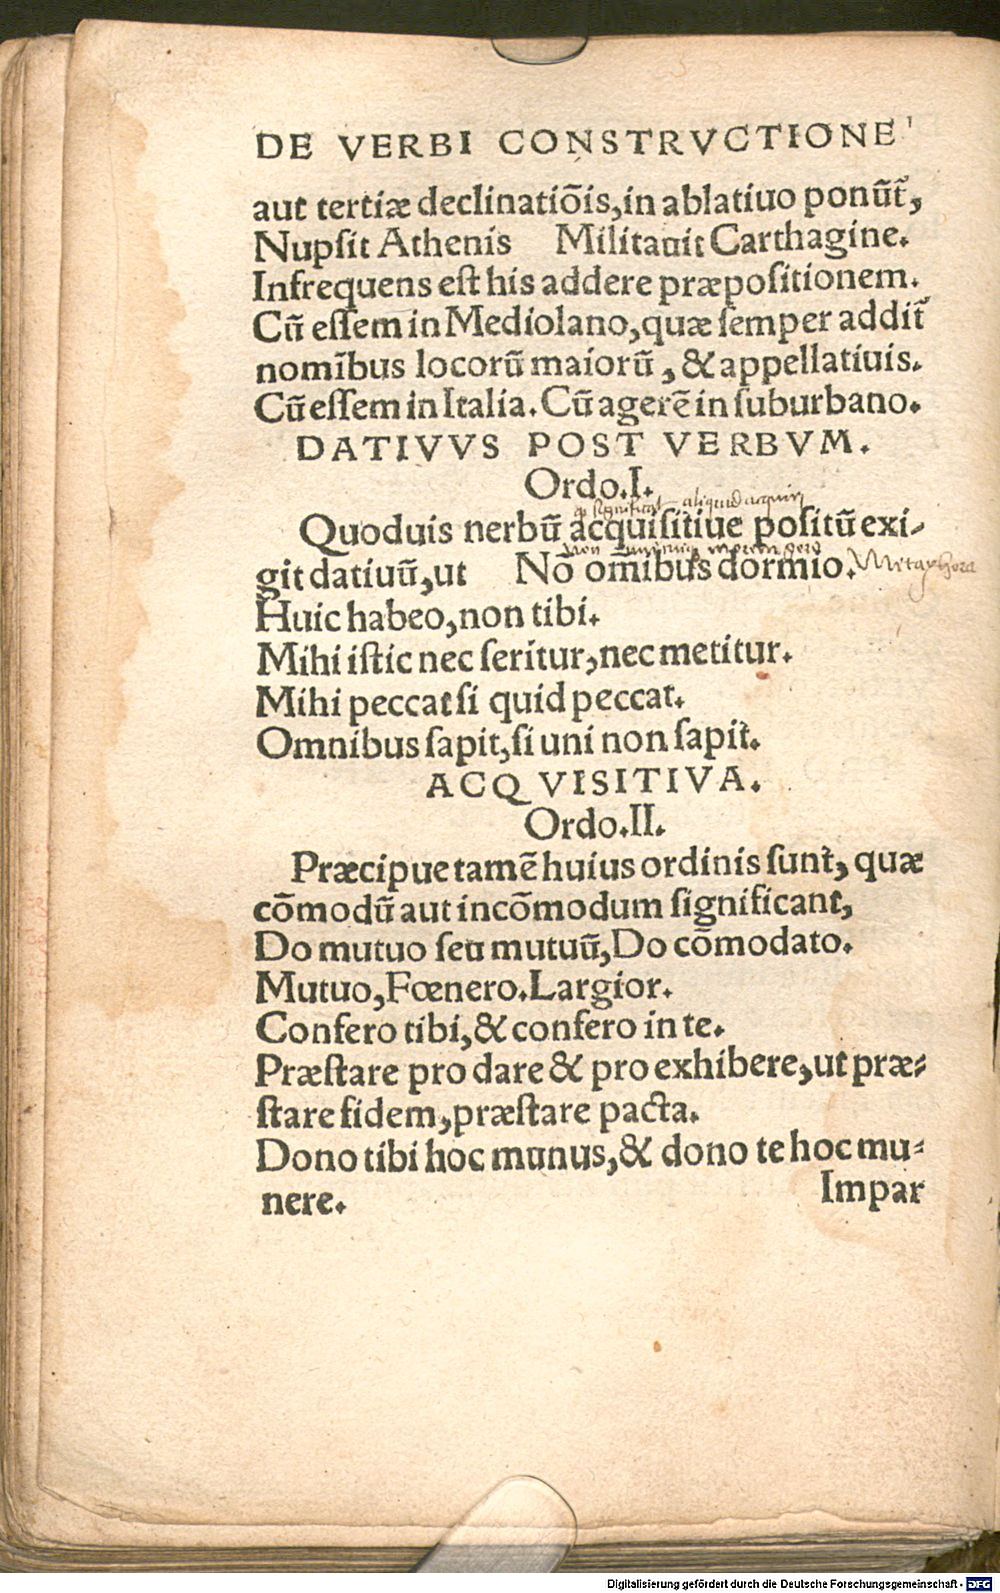 DE VERBI CONSTRVCTIONE
aut tertiæ declinatiõis, in ablatiuo ponũt̃,
Nupsit Athenis Militauit Carthagine.
Infrequens eſt his addere præpoſitionem.
Cũ eſſem in Mediolano, quæ ſemper addit̃
nomĩbus locorũ maiorũ, & appellatiuis.
Cũ eſſem in Italia. Cũ agerẽ in ſuburbano.
DATIVVS POST VERBVM.
Ordo.I.
significat aliquid acquiri
Quoduis nerbũ acquiſitiue poſitũ exi-
non morem gero
git datiuũ, ut Nõ omĩbus dormio. Metaphora
Huic habeo, non tibi.
Mihi iſtic nec ſeritur, nec metitur.
Mihi peccat ſi quid peccat.
Omnibus ſapit, ſi uni non ſapit.
ACQVISITIVA.
Ordo.II.
Præcipue tamẽ huius ordinis ſunt, quæ
cõmodũ aut incõmodum ſignificant,
Do mutuo ſeu mutuũ, Do cõmodato.
Mutuo, Fœnero. Largior.
Confero tibi, & confero in te.
Præſtare pro dare & pro exhibere, ut præ-
ſtare fidem, præſtare pacta.
Dono tibi hoc munus, & dono te hoc mu-
nere. Impar
Digitalisierung gefördert durch die Deutsche Forschungsgemeinschaft - DFG